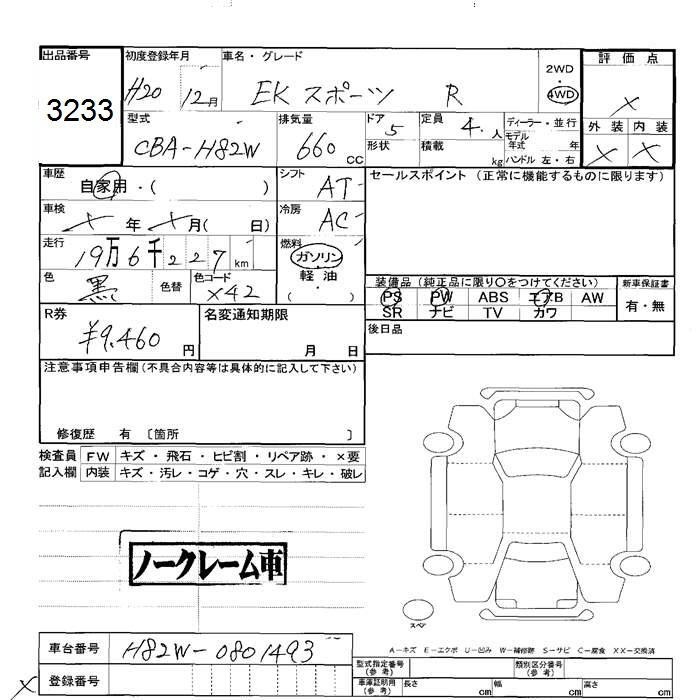 出品番号
3233
初度登録年月
H20 12月
車名・グレード
EK スポーツ R
2WD
・
4WD
評価点
X
外装 内装
X X
型式
CBA-H82W
排気量
660 cc
ドア 5
形状
定員 4. 人
積載 kg
ディーラー・並行
モデル
年式 年
ハンドル 左・右
車歴
自家用・( )
シフト
AT
車検
X 年 X月( 日)
冷房
AC
走行
19万6千227km
燃料
ガソリン
・
軽油
・
( )
色
黒
色替
色コード
X42
セールスポイント (正常に機能するものに限ります)
装備品 (純正品に限り〇をつけてください)
PS PW ABS エアB AW
SR ナビ TV カワ
新車保証書
有・無
後日品
R券
¥9,460 円
名変通知期限
月 日
注意事項申告欄 (不具合内容等は具体的に記入して下さい)
修復歴 有 〔箇所 〕
検査員 FW キズ・飛石・ヒビ割・リペア跡・×要
記入欄 内装 キズ・汚レ・コゲ・穴・スレ・キレ・破レ
ノークレーム車
スペア
A-キズ E-エクボ U-凹み W-補修跡 S-サビ C-腐食 XX-交換済
車台番号 H82W-0801493
X 登録番号
型式指定番号
(参考)
類別区分番号
(参考)
車庫証明用
(参考)
長さ cm 幅 cm 高さ cm